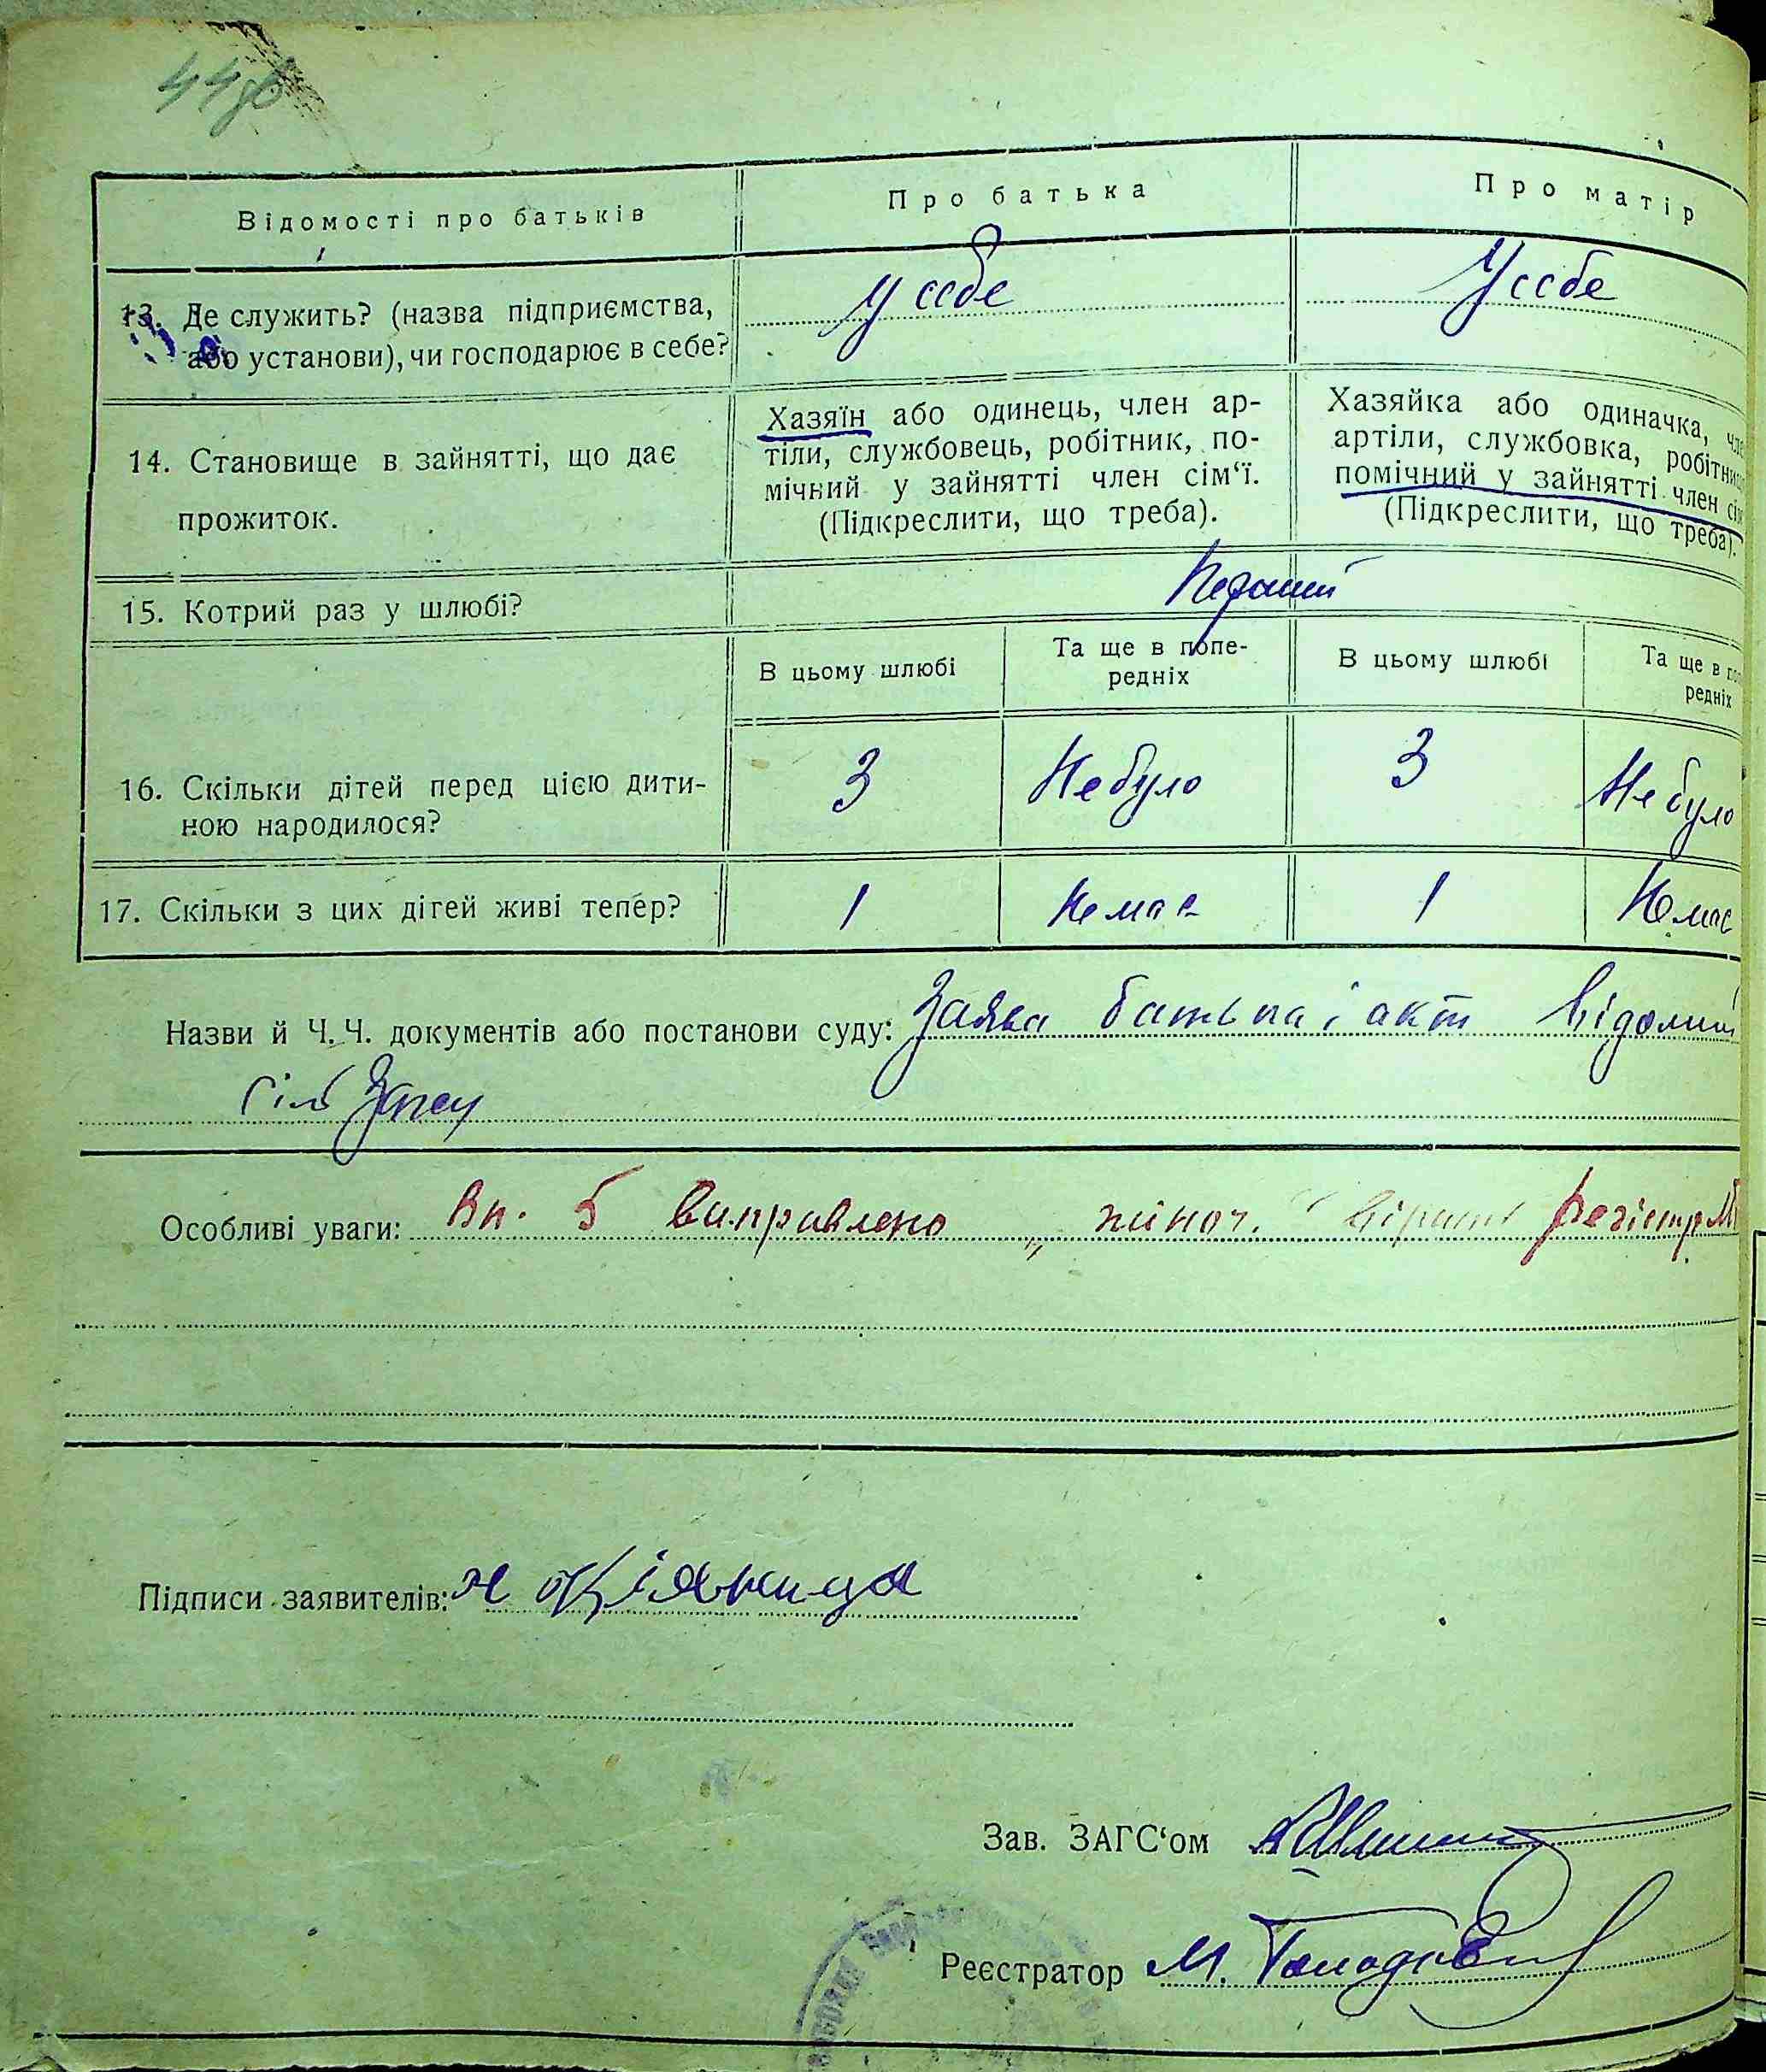 Відомості про батьків
Про батька
Про матір
13. Де служить? (назва підприємства,
або установи), чи господарює в себе?
У себе
У себе
14. Становище в зайнятті, що дає
прожиток.
Хазяїн або одинець, член ар-
тіли, службовець, робітник, по-
мічний у зайнятті член сім‘ї.
(Підкреслити, що треба).
Хазяйка або одиначка,
артіли, службовка,
помічний у зайнятті член
(Підкреслити, що треба).
15. Котрий раз у шлюбі?
Перший
В цьому шлюбі
Та ще в попе-
редніх
В цьому шлюбі
Та ще в
редніх
16. Скільки дітей перед цією дити-
ною народилося?
3
Не було
3
Не було
17. Скільки з цих дітей живі тепер?
1
Немає
1
Немає
Назви й Ч.Ч. документів або постанови суду: Заява батька і акт
Загсу
Особливі уваги: Вп. 5 виправлено „жіноч.
Підписи заявителів:
Зав. ЗАГС‘ом
Реєстратор М.